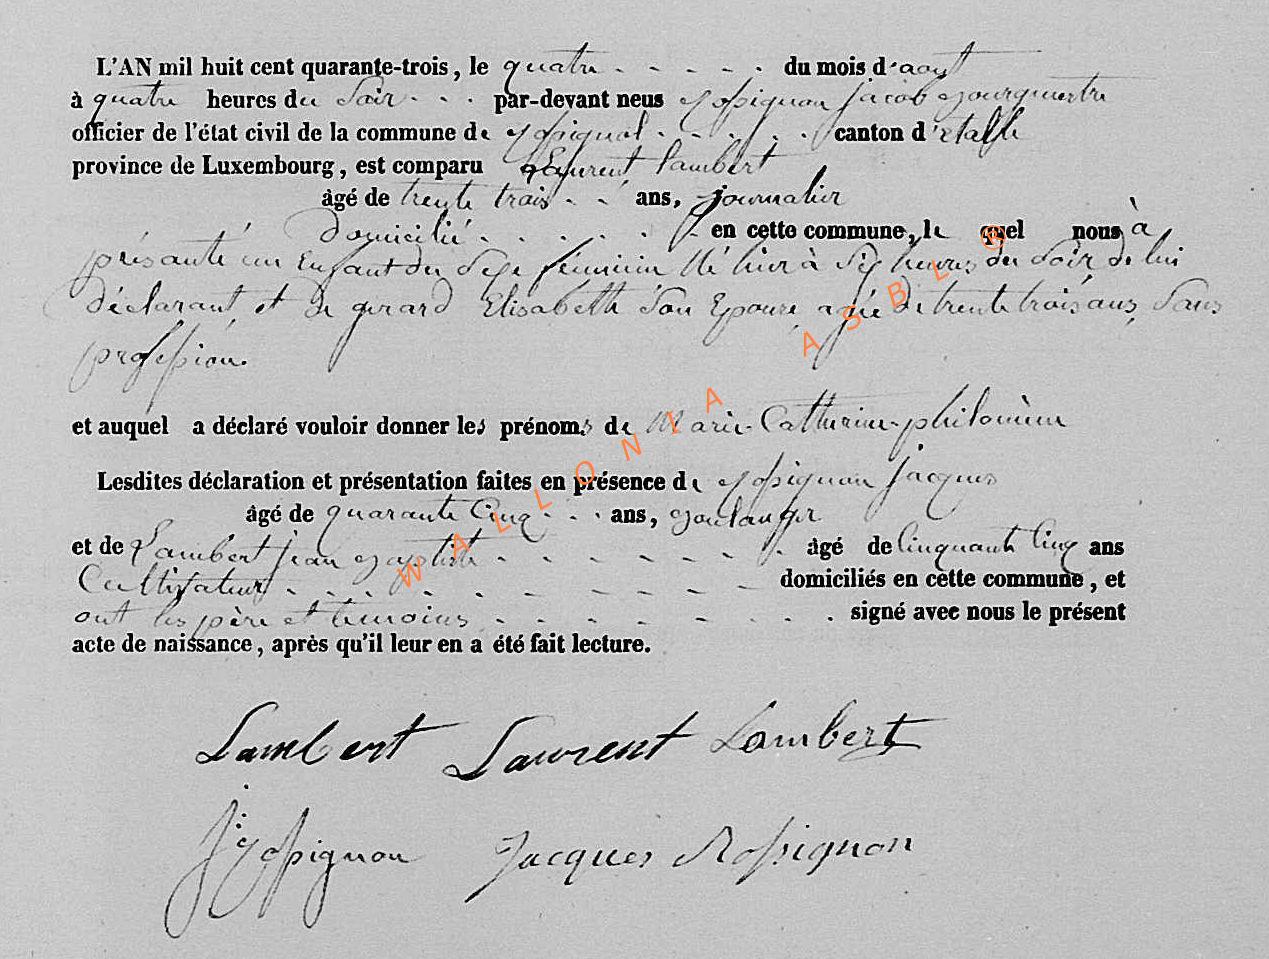 L'AN mil huit cent quarante-trois, le quatre - - - - - du mois d'aout
à quatre heures du Soir - - - par-devant nous Rossignon Jacob Bourgmestre
officier de l'état civil de la commune de Rossignol - - - - - canton d'etalle
province de Luxembourg, est comparu Laurent Lambert
âgé de trente trois - - ans, journalier
domicilié - - - - - en cette commune, lequel nous à
présanté un Enfant du Sexe féminin Né hier à Six heures du Soir de lui
déclarant et de gerard Elisabeth Son Epouse agée de trente trois ans, Sans
profession.
et auquel a déclaré vouloir donner les prénoms de Marie-Catherine-philomène
Lesdites déclaration et présentation faites en présence de Rossignon Jacques
âgé de quarante Cinq - - - ans, Boulanger
et de Lambert jean Baptiste - - - - - - - âgé de Cinquante Cinq ans
Cultivateur - - - - - - - - - domiciliés en cette commune, et
ont les père et temoins - - - - - - - signé avec nous le présent
acte de naissance, après qu'il leur en a été fait lecture.
Lambert Laurent Lambert
J: Rossignon Jacques Rossignon
WALLONIA ASBL ©